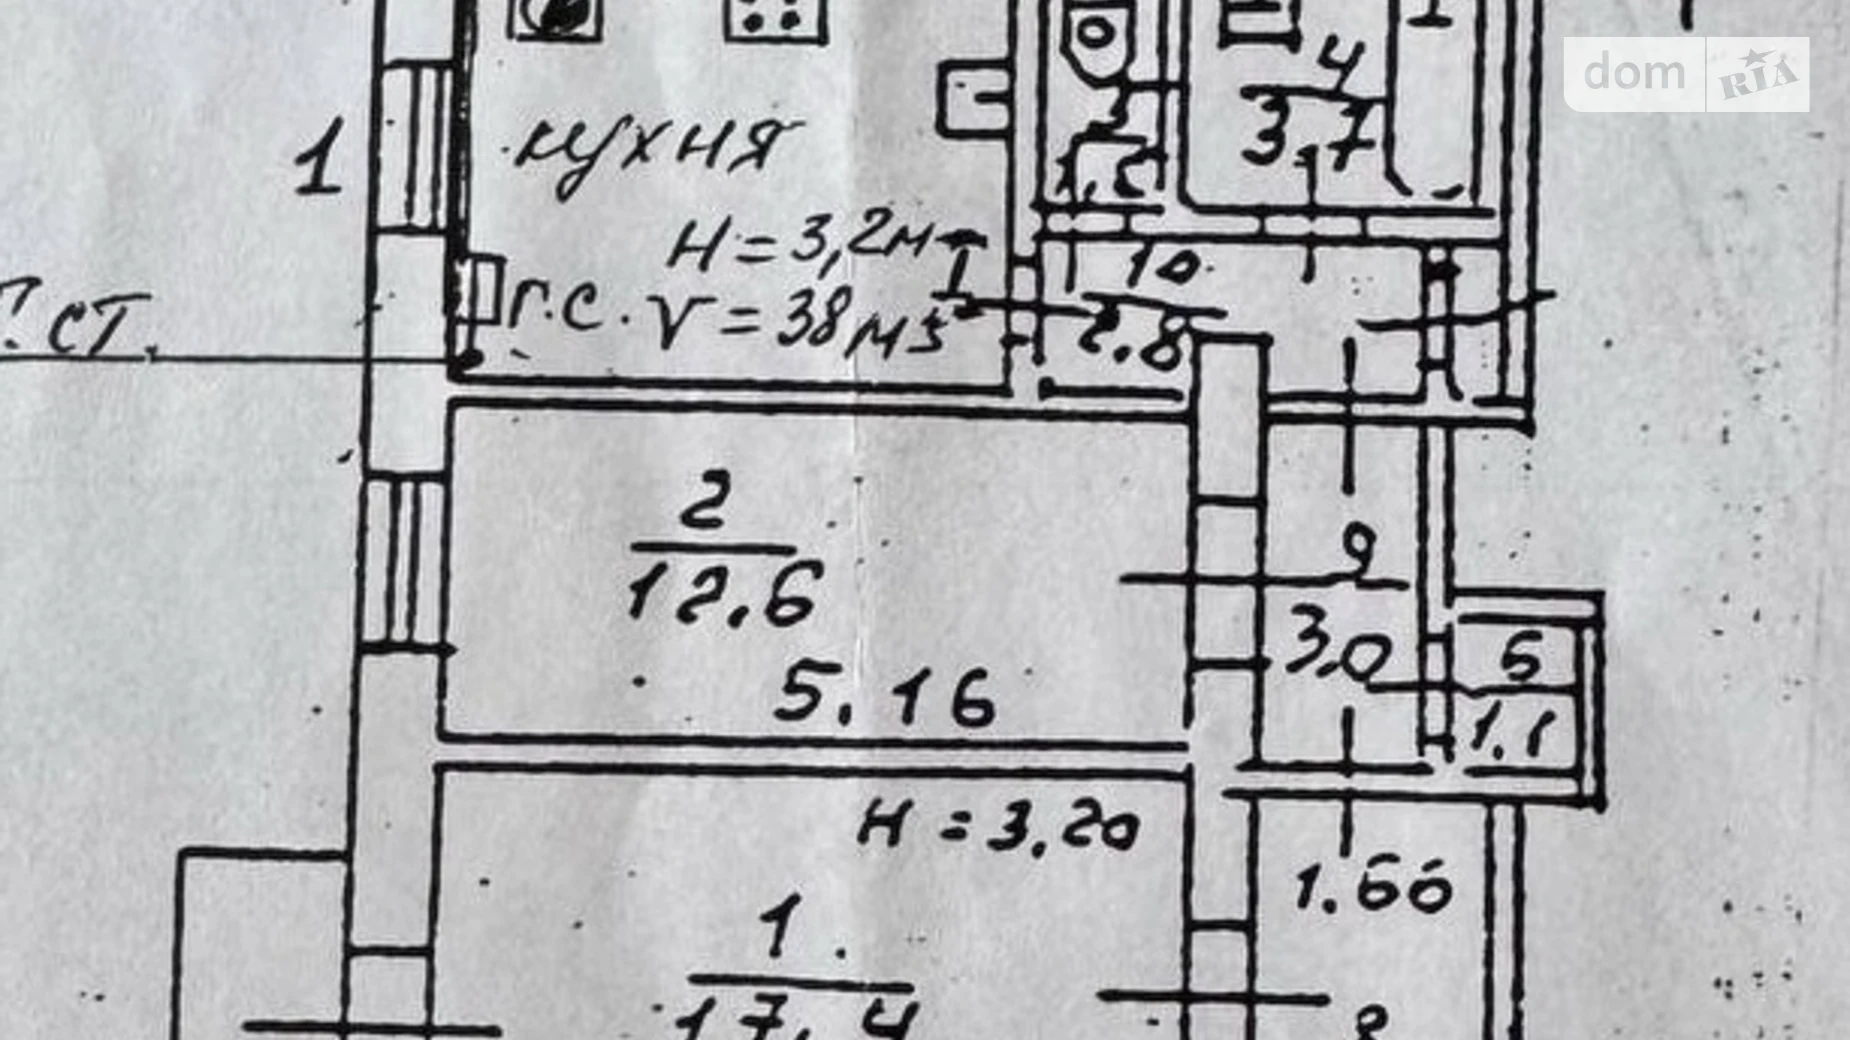 dom RIA
4
3.7
1
кухня
H = 3,2м
г.с. V = 38 м3
10
2.8
ст.
2
12.6
5.16
9
3,0
5
1.1
H = 3,20
1
17.4
1.66
8